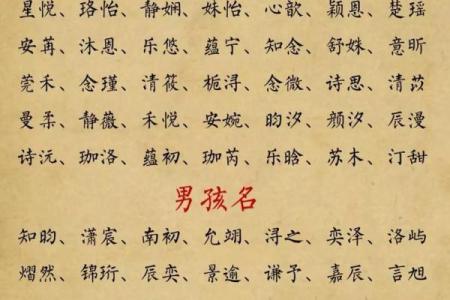 星悦、珞怡、静娴、姝怡、心歆、颖恩、楚瑶
安苒、沐恩、乐悠、蕴宁、知念、舒姝、意昕
莞禾、念瑾、清筱、栀浔、念微、诗思、清苡
曼柔、静薇、禾悦、安婉、昀汐、颜汐、辰漫
诗沅、珈洛、蕴初、珈芮、乐晗、苏木、汀甜
男孩名
知昀、潇宸、南初、允翊、浔之、奕泽、洛屿
熠然、锦珩、辰奕、景逾、谦予、嘉辰、言旭